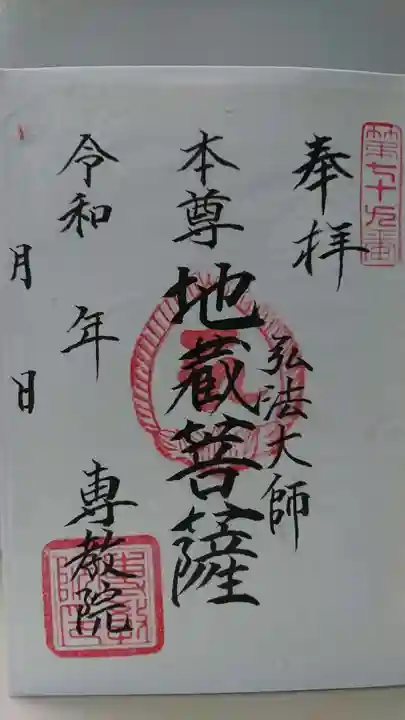 第七十九番
奉拝
弘法大師
本尊 地蔵菩薩
令和 年
月 日
専教院